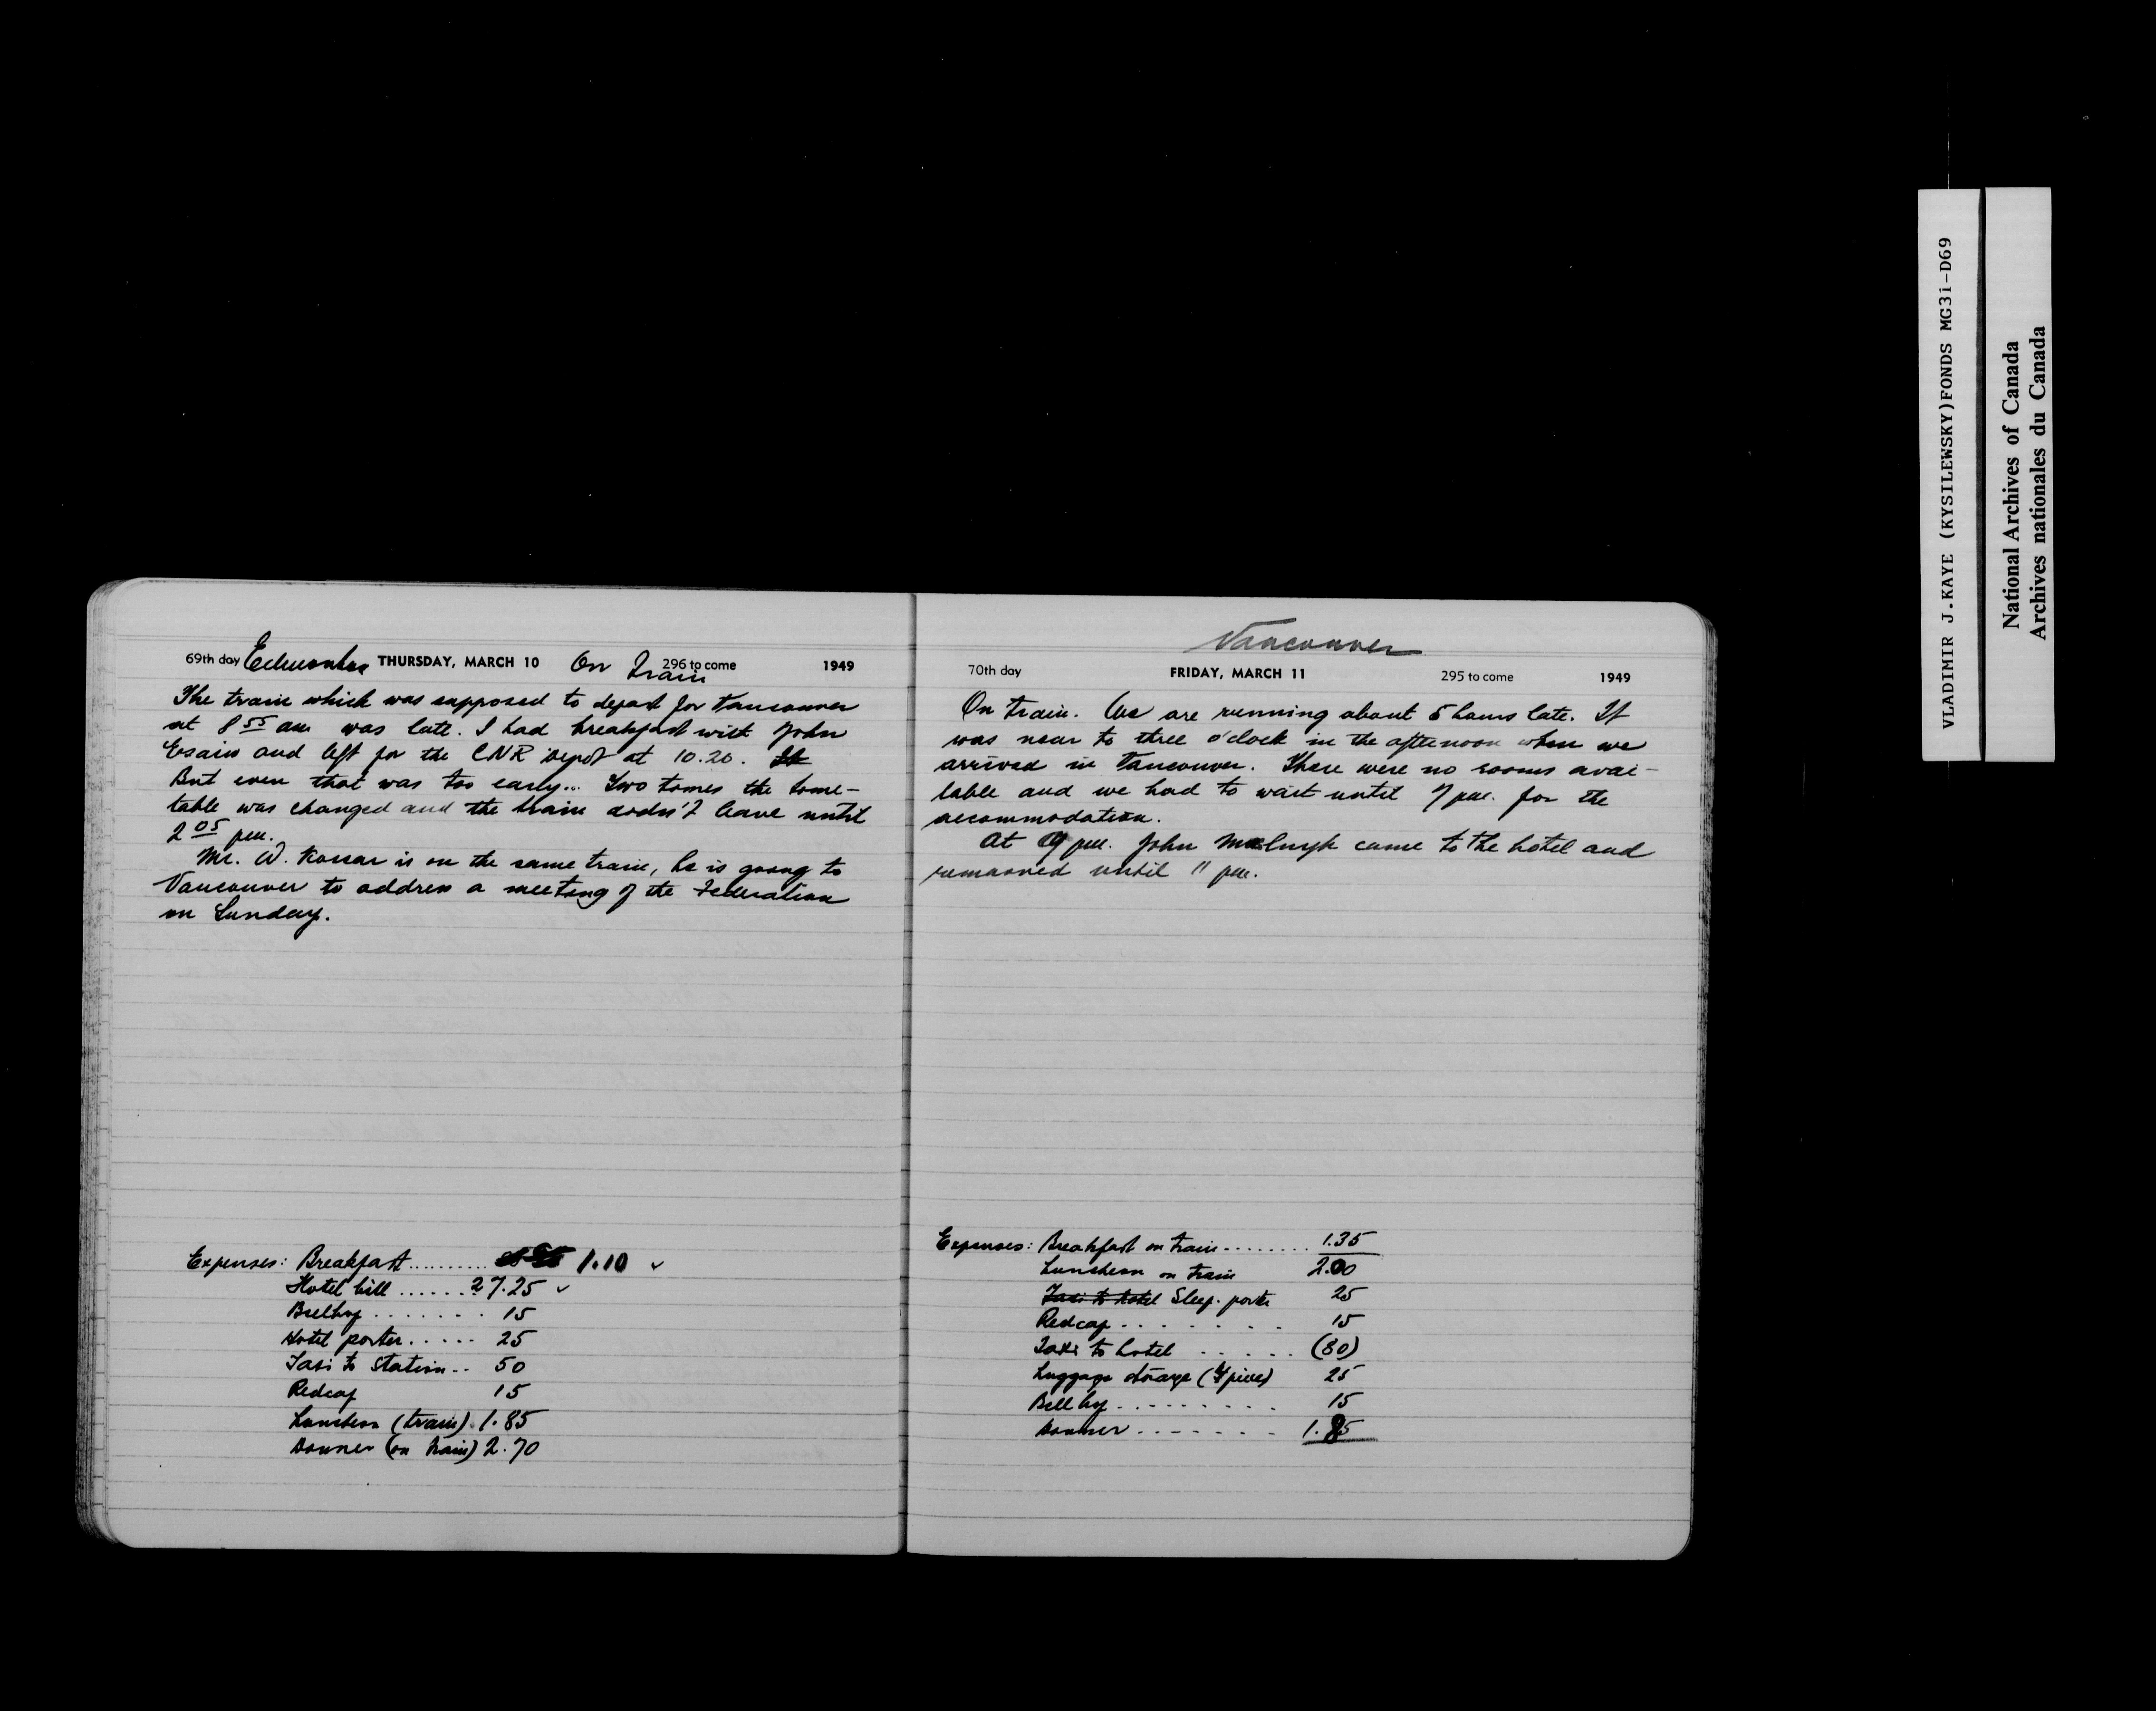 69th day Edmonton THURSDAY, MARCH 10 On Train 296 to come 1949
The train which was supposed to depart for Vancouver
at 8 55 am was late. I had breakfast with John
Esaiw and left for the CNR Depot at 10.20. It
But even that was too early... Two times the time-
table was changed and the train didn't leave until
2 05 pm.
Mr. W. Kossar is on the same train, he is going to
Vancouver to address a meeting of the Federation
on Sunday.
Expenses: Breakfast ......... 1.10 ✓
Hotel bill ...... 27.25 ✓
Bellboy ....... 15
Hotel porter ..... 25
Taxi to station .. 50
Redcap 15
Luncheon (train) 1.85
Dinner (on train) 2.70
Vancouver
70th day FRIDAY, MARCH 11 295 to come 1949
On train. We are running about 5 hours late. It
was near to three o'clock in the afternoon when we
arrived in Vancouver. There were no rooms avai-
lable and we had to wait until 7 pm. for the
accommodation.
At 9 pm. John came to the hotel and
remained until 11 pm.
Expenses: Breakfast on train ........ 1.35
Luncheon on train 2.00
Taxi to hotel Sleep. porter 25
Redcap ....... 15
Taxi to hotel ..... (80)
Luggage storage (4 pieces) 25
Bell boy ......... 15
Dinner ....... 1.85
VLADIMIR J.KAYE (KYSILEWSKY)FONDS MG3i-D69
National Archives of Canada
Archives nationales du Canada